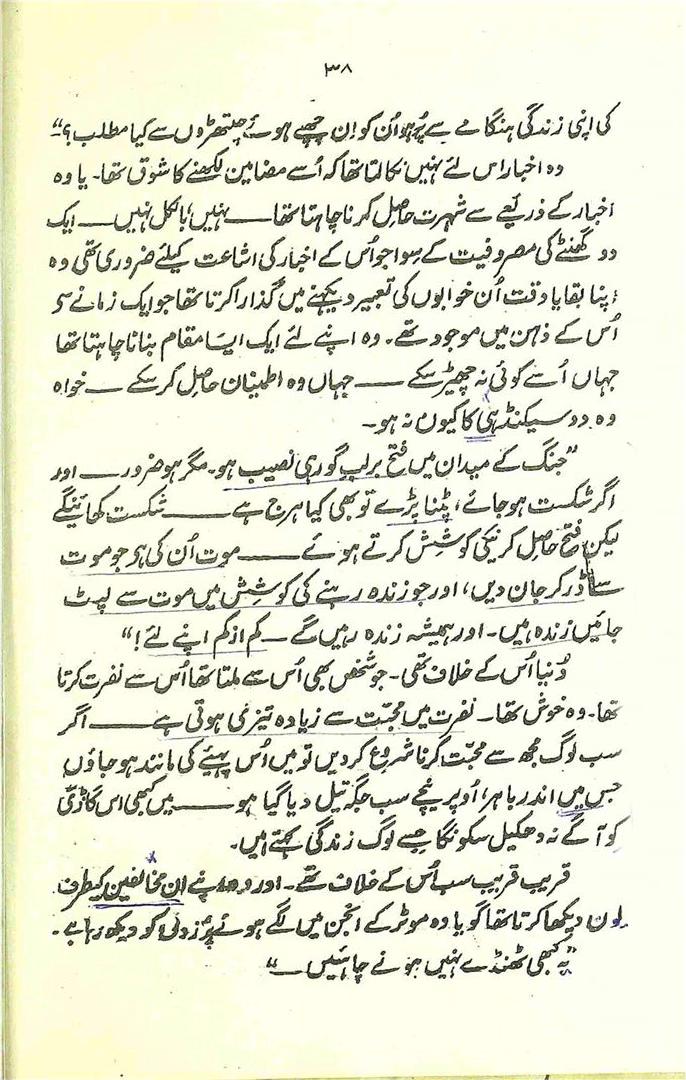 ۳۸
کی اپنی زندگی ہنگامے سے پُر ہو اُن کو اِن چھپے ہوئے چیتھڑوں سے کیا مطلب؟"
وہ اخبار اس لئے نہیں نکالتا تھا کہ اُسے مضامین لکھنے کا شوق تھا۔ یا وہ
اخبار کے ذریعے سے شہرت حاصل کرنا چاہتا تھا — نہیں، بالکل نہیں — ایک
دو گھنٹے کی مصروفیت کے سوا جو اُس کے اخبار کی اشاعت کیلئے ضروری تھی وہ
اپنا بقایا وقت اُن خوابوں کی تعبیر دیکھنے میں گذارا کرتا تھا جو ایک زمانے سے
اُس کے ذہن میں موجود تھے۔ وہ اپنے لئے ایک ایسا مقام بنانا چاہتا تھا
جہاں اُسے کوئی نہ چھیڑ سکے — جہاں وہ اطمینان حاصل کر سکے — خواہ
وہ دو سیکنڈ ہی کا کیوں نہ ہو۔
"جنگ کے میدان میں فتح برلبِ گور ہی نصیب ہو۔ مگر ہو ضرور — اور
اگر شکست ہو جائے، پٹنا پڑے تو بھی کیا ہرج ہے — شکست کھائینگے
لیکن فتح حاصل کرنیکی کوشش کرتے ہوئے — موت اُن کی ہو جو موت
سے ڈر کر جان دیں، اور جو زندہ رہنے کی کوشش میں موت سے لپٹ
جائیں زندہ ہیں۔ اور ہمیشہ زندہ رہیں گے — کم از کم اپنے لئے!"
دُنیا اُس کے خلاف تھی۔ جو شخص بھی اُس سے ملتا تھا اُس سے نفرت کرتا
تھا۔ وہ خوش تھا۔ نفرت میں محبّت سے زیادہ تیزی ہوتی ہے — اگر
سب لوگ مجھ سے محبّت کرنا شروع کر دیں تو میں اُس پہیئے کی مانند ہو جاؤں
جس میں اندر باہر، اُوپر نیچے سب جگہ تیل دیا گیا ہو — میں کبھی اس گاڑی
کو آگے نہ دھکیل سکونگا جسے لوگ زندگی کہتے ہیں۔
قریب قریب سب اُس کے خلاف تھے۔ اور وہ اپنے ان مخالفین کیطرف
یوں دیکھا کرتا تھا گویا وہ موٹر کے انجن میں لگے ہوئے پُرزوں کو دیکھ رہا ہے۔
"یہ کبھی ٹھنڈے نہیں ہونے چاہئیں —"